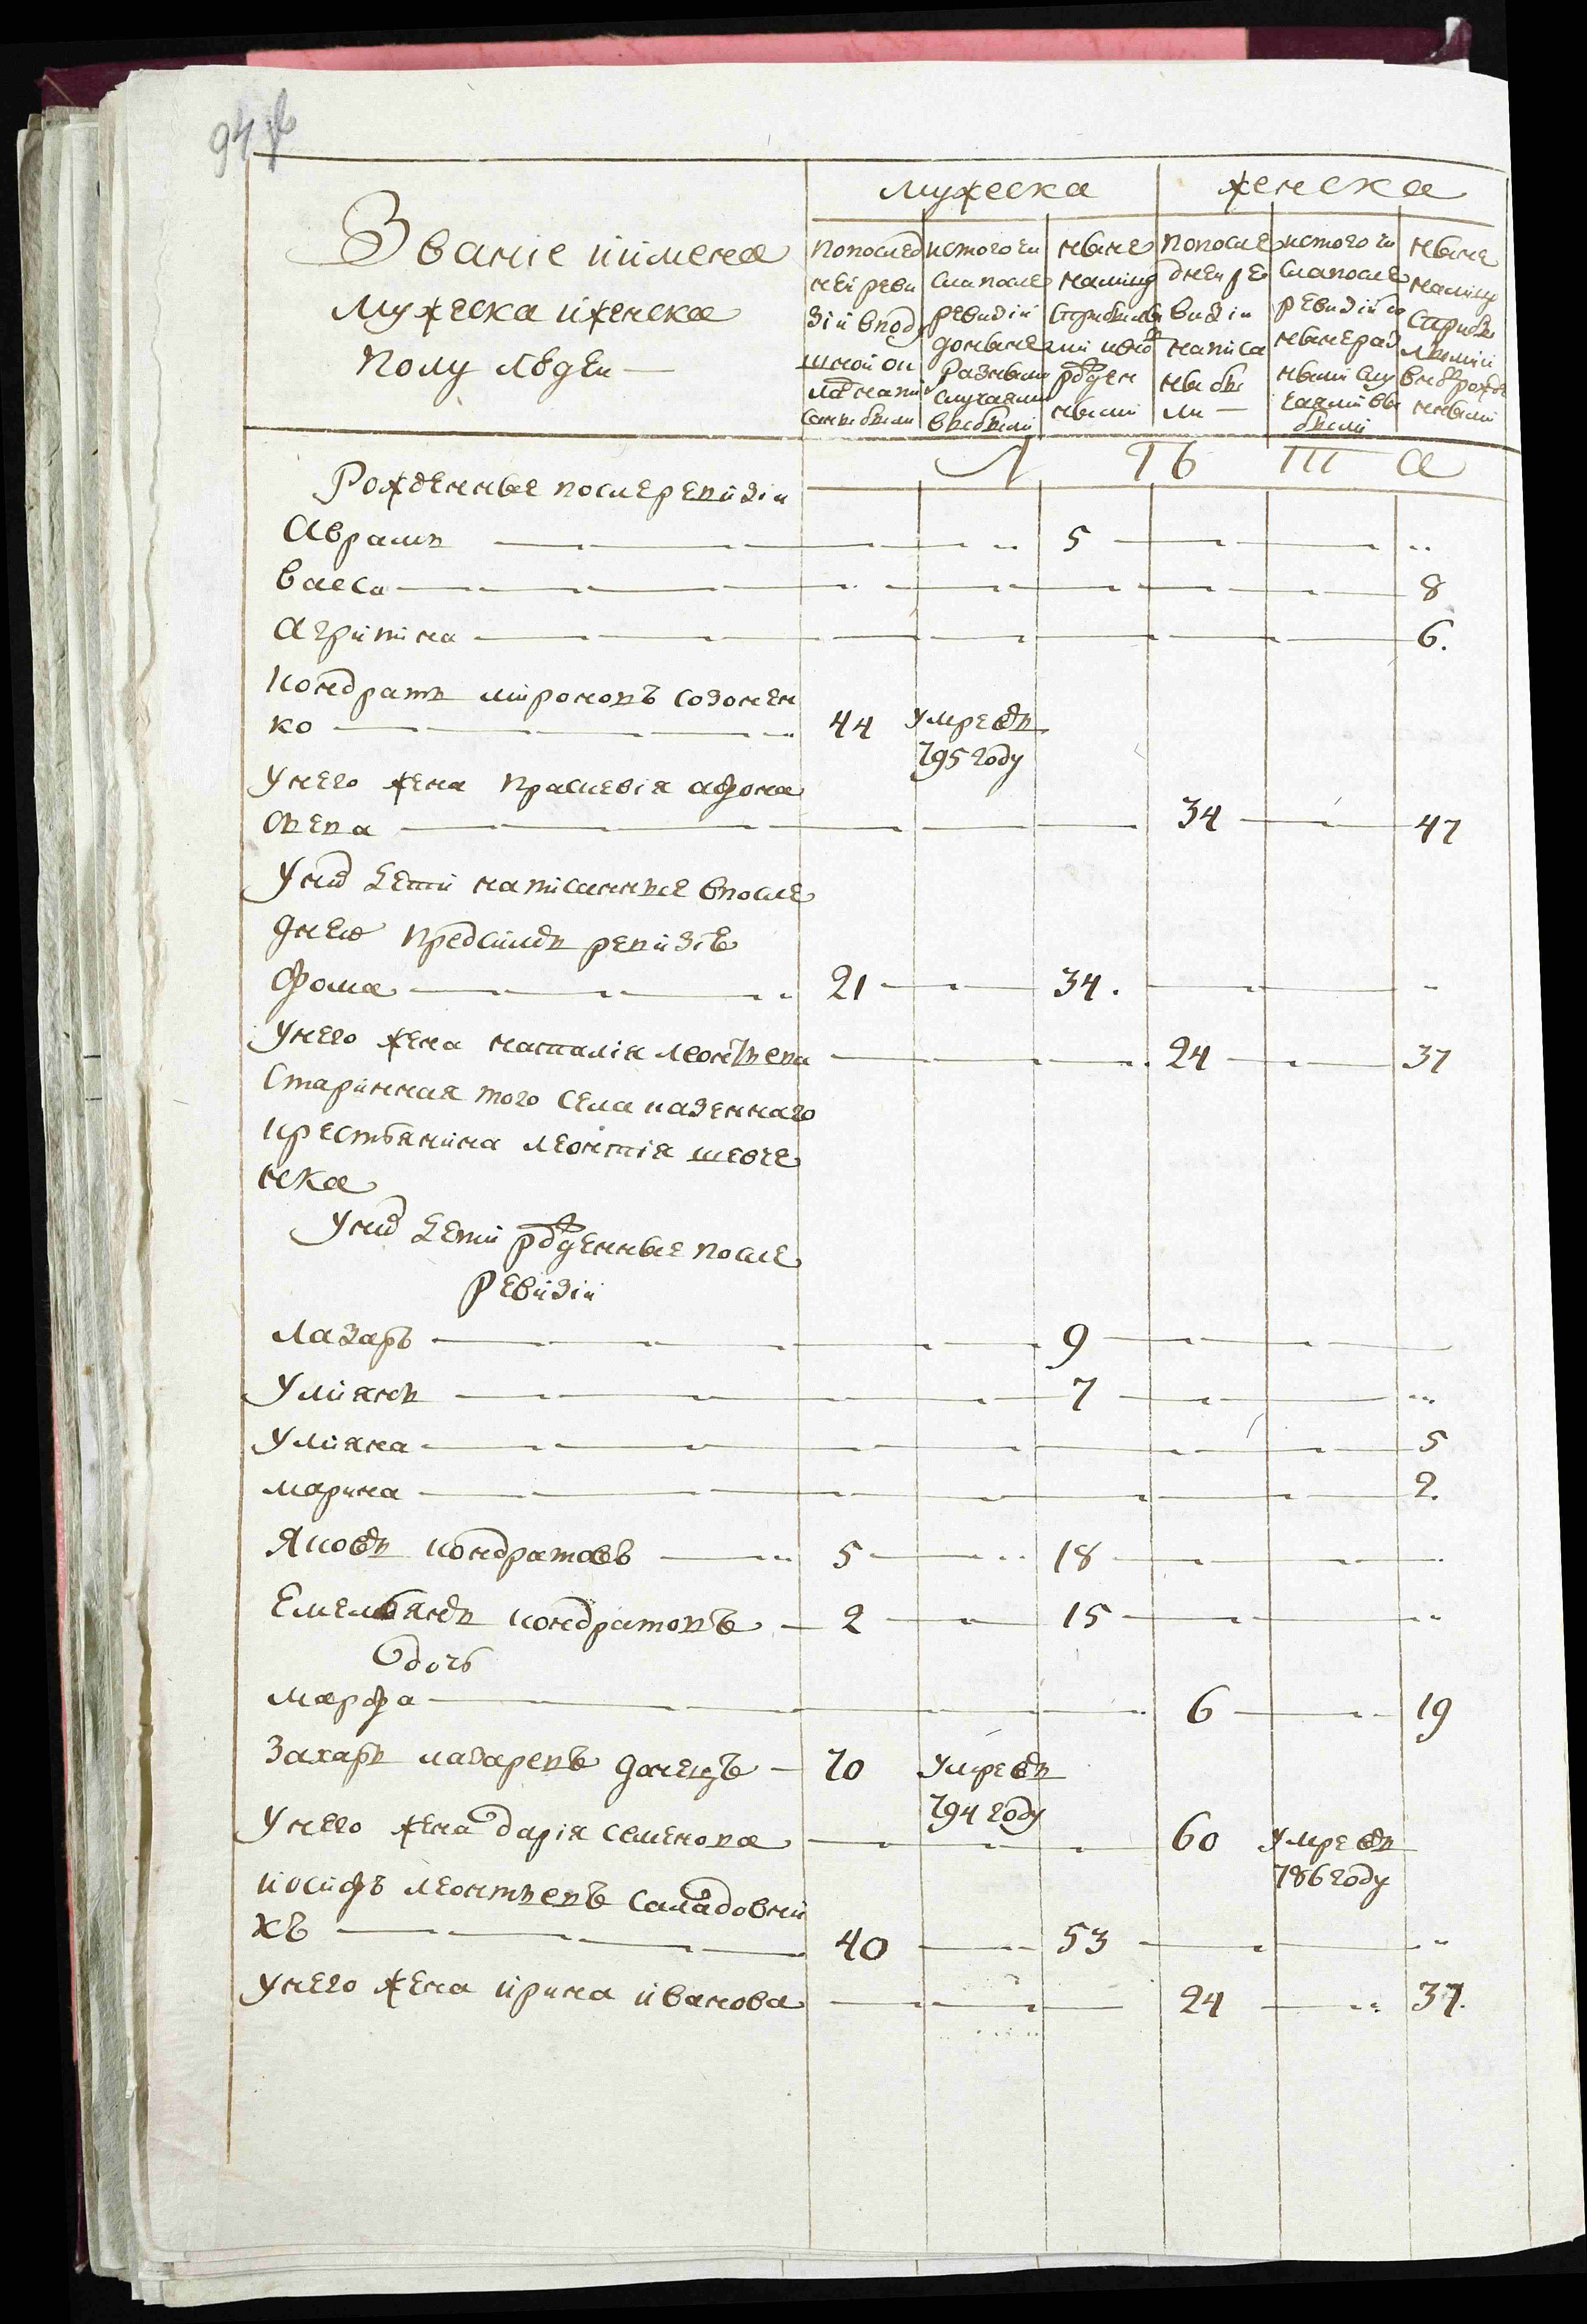 94
Званіе иимена
Мужеска иженска
полу людеи —
мужеска
женска
попослед
неи реви
зіи впод
ушнои ок
ладнапи
саны были
исттого чи
сла после
ревизіи
доныне
разными
случаями
выбыли
ныне
налицо
спрыбылы
ми ивно рожден
ными
попосле
днеи ре
визіи
написа
ны бы
ли —
исттого чи
сла после
ревизіи по
ныне раз
ными слу
чаями вы
были
ныне
налицо
сприбы
лыми
вновь рожде
нными
Л Ѣ Т А
Рожденные послеревизіи
Аврамъ 5
васса 8
Агрипина 6.
Кондратъ мироновъ созонен
ко 44 умре въ
795 году
Унего жена прасковія афона
сьева 34 47
Уних дети написанные впосле
днею пред симъ ревизіѣ
Фома 21 34.
Унего жена наталія леонтьева 24 37
Старинная того села казеннаго
крестьянина леонтія шевче
нка
Уних дети рожденные после
Ревизіи
Лазаръ 9
Улиянъ 7
Улияна 5
марина 2.
Яковъ кондратовъ 5 18
Емельянъ кондратовъ 2 15
дочь
марфа 6 19
Захаръ лазаревъ донецъ 70 умре въ
794 году
Унего жена дарія семенова 60 умре въ
786 году
иосифъ леонтьевъ Саладовни
къ 40 53
унего жена ирина иванова 24 37.